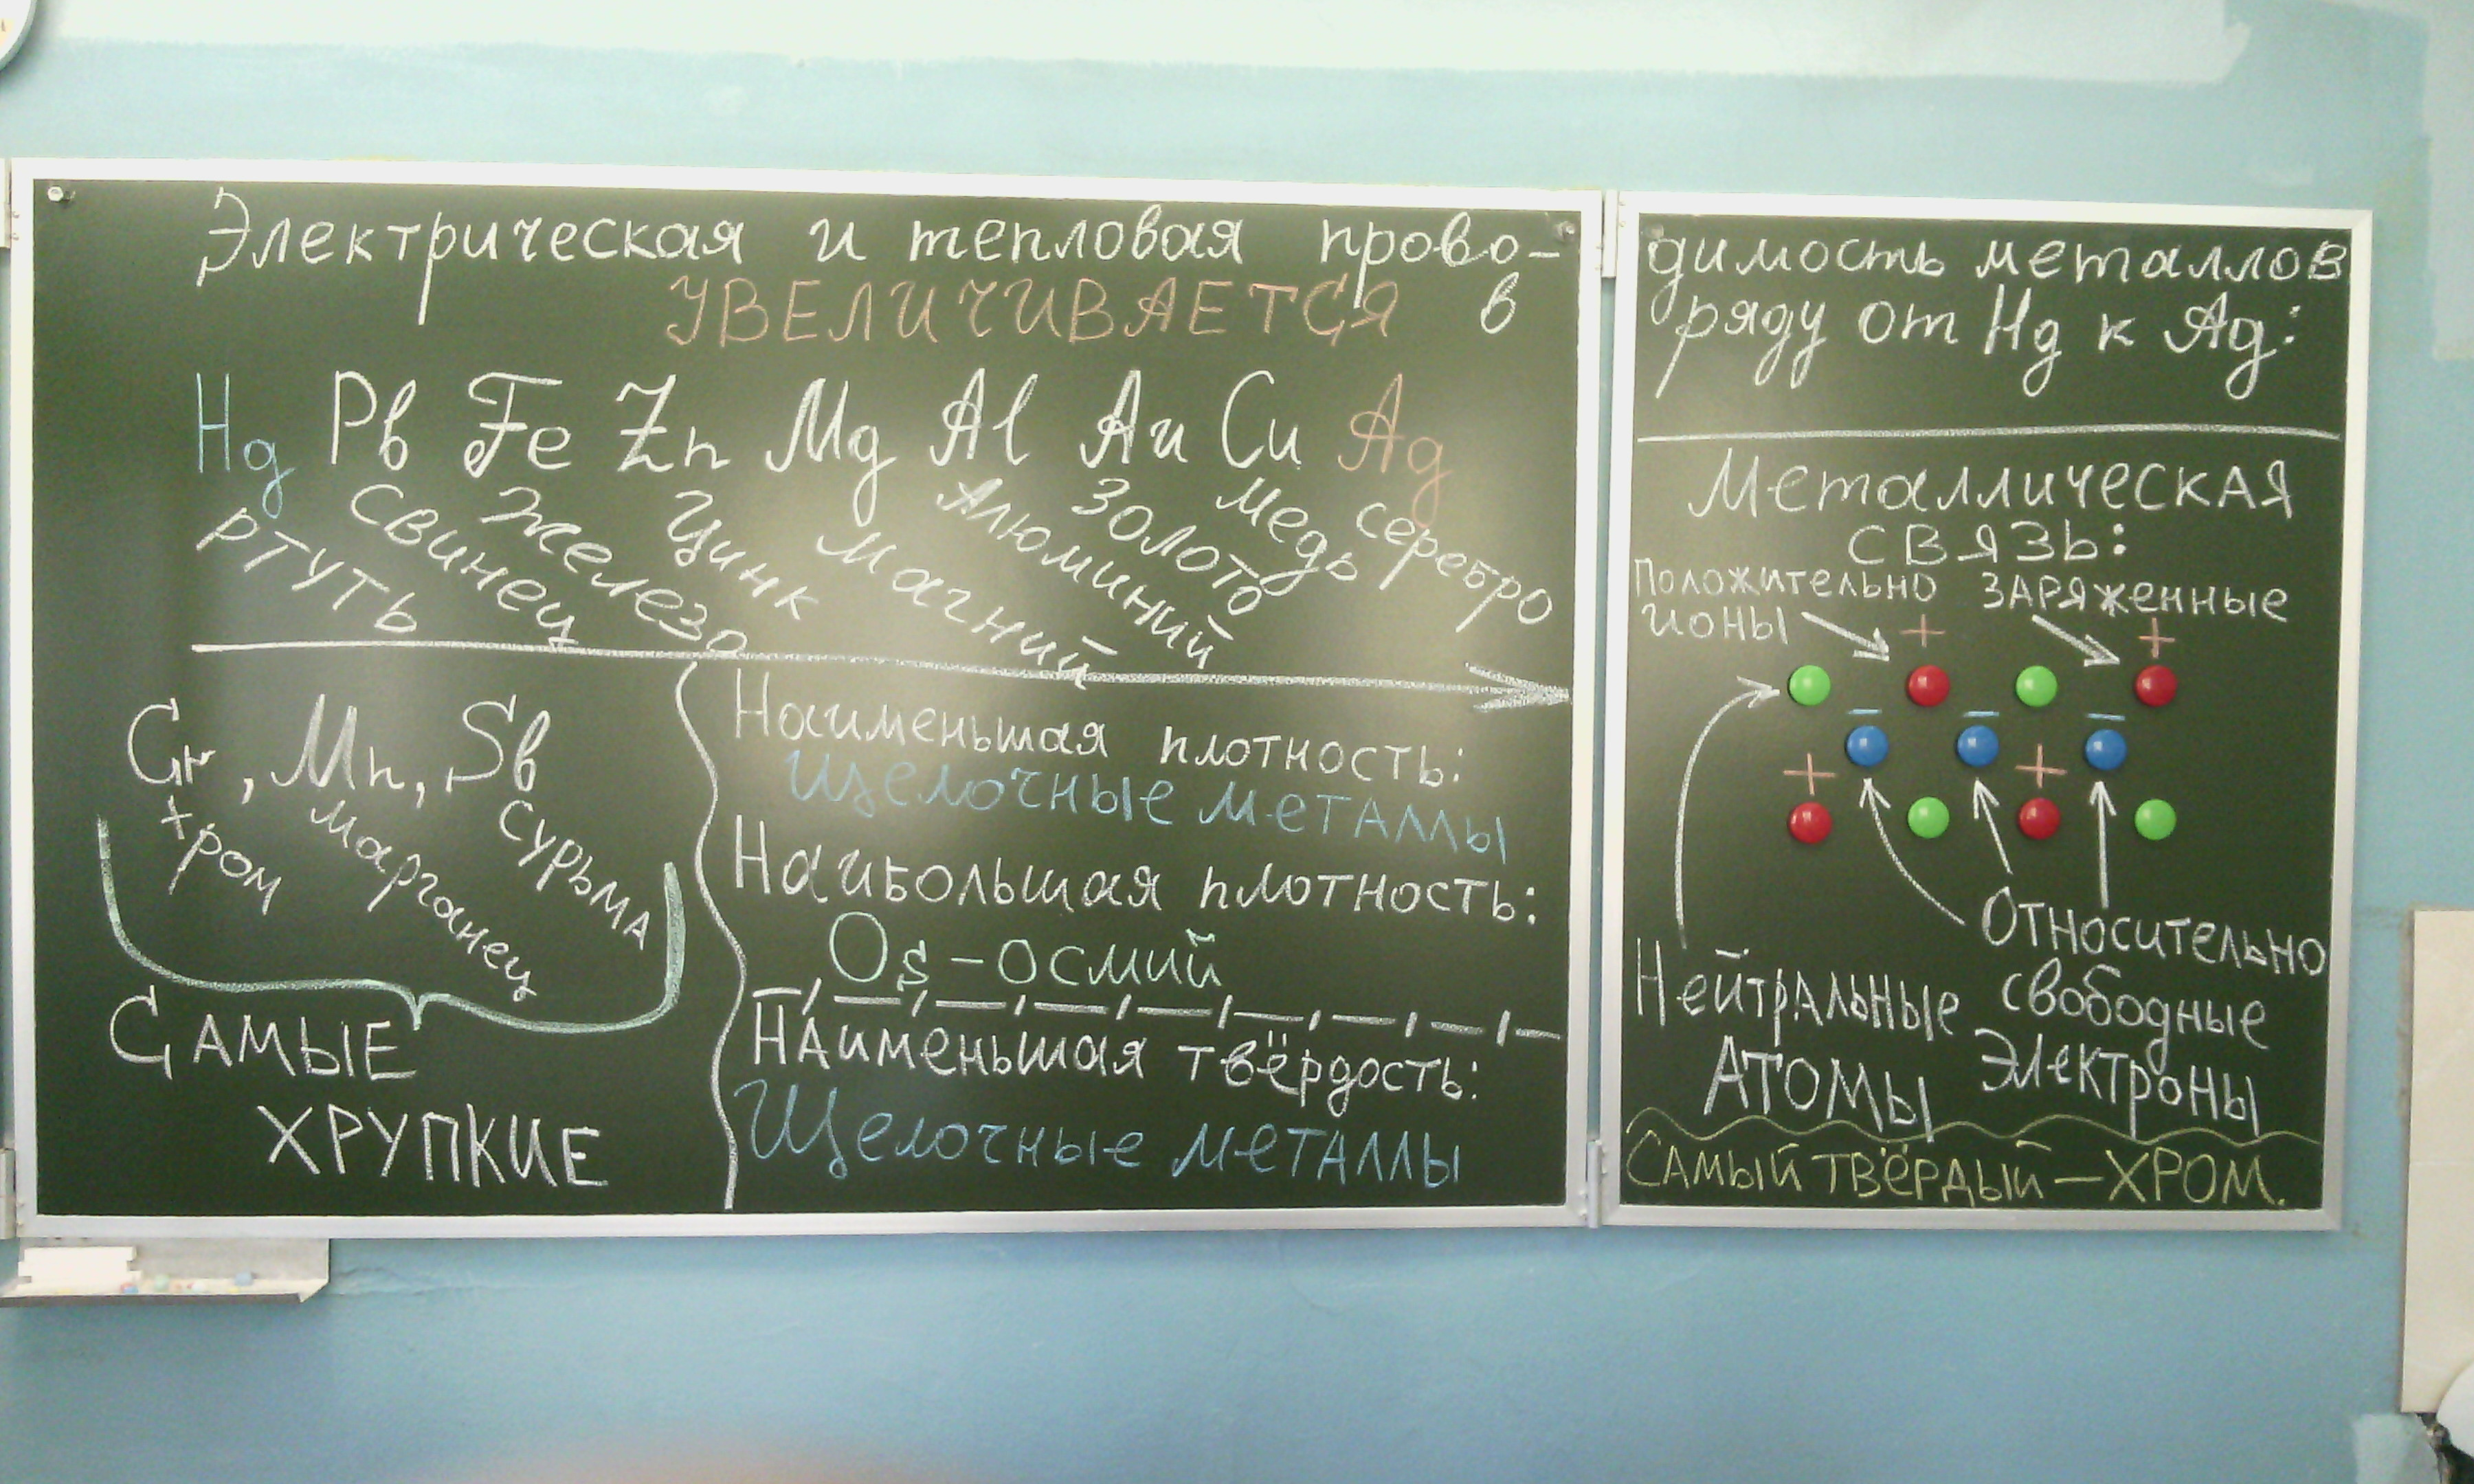 Электрическая и тепловая прово-
димость металлов
УВЕЛИЧИВАЕТСЯ в
ряду от Hg к Ag:
Hg Pb Fe Zn Mg Al Au Cu Ag
ртуть свинец железо цинк магний алюминий золото медь серебро
Cr, Mn, Sb
хром марганец сурьма
САМЫЕ
ХРУПКИЕ
Наименьшая плотность:
Щелочные металлы
Наибольшая плотность:
Os – осмий
Наименьшая твёрдость:
Щелочные металлы
Металлическая
связь:
Положительно заряженные
ионы
+ +
– – –
+ +
Нейтральные
атомы
Относительно
свободные
электроны
Самый твёрдый – ХРОМ.